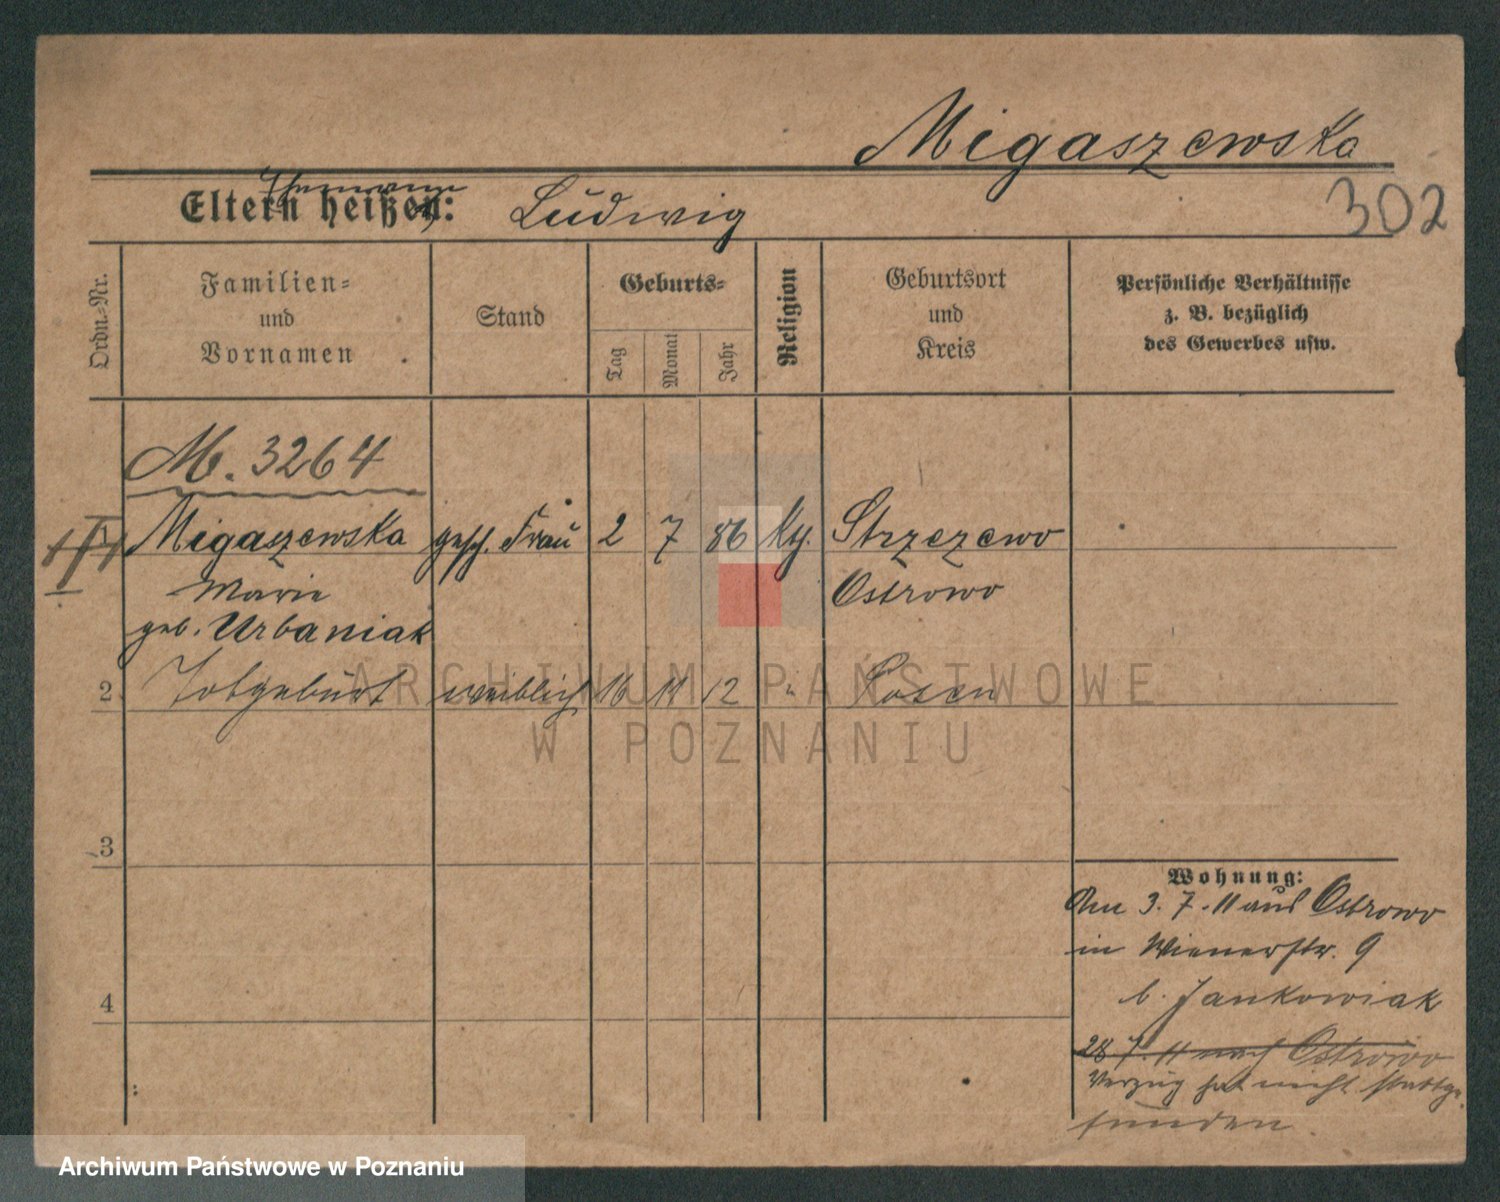 Migaszewska
302
Eltern heißen: Ludwig
Ehemann
Ordn.-Nr.
Familien- und Vornamen
Stand
Geburts-
Tag
Monat
Jahr
Religion
Geburtsort und Kreis
Persönliche Verhältnisse
z. B. bezüglich
des Gewerbes usw.
M. 3264
Migaszewska gesch. Frau 2 7 86 kth. Strzezewo
Marie Ostrowo
geb. Urbaniak
2 Totgeburt weiblich 16 11 12 " Posen
3
4
Wohnung:
Am 3. 7. 11 aus Ostrowo
in Wienerstr. 9
b. Jankowiak
28 7. 11 nach Ostrowo
Verzug hat nicht stattge-
funden.
ARCHIWUM PAŃSTWOWE
W POZNANIU
Archiwum Państwowe w Poznaniu